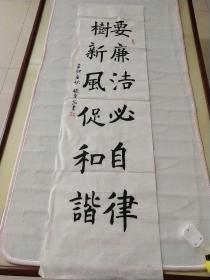 要廉洁必自律
樹新風促和諧